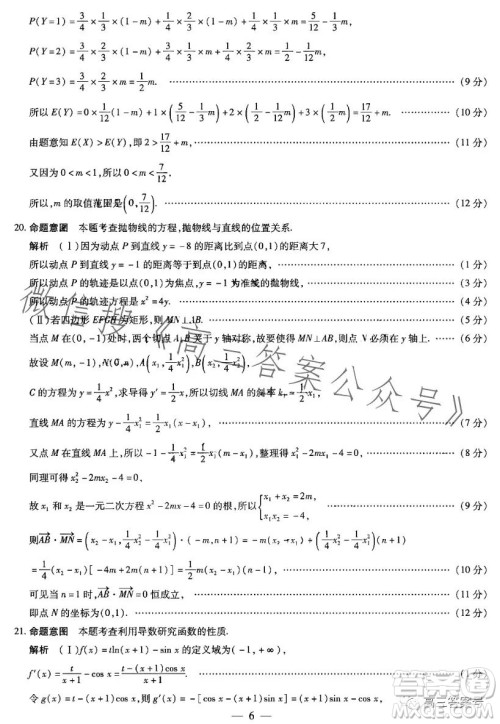 P(Y=1)=3/4×1/3×(1-m)+1/4×1/3×m=5/12-1/3m
P(Y=2)=3/4×2/3×(1-m)+1/4×1/3×m=1/2-1/4m
P(Y=3)=3/4×2/3×m=1/2m. (9分)
所以E(Y)=0×1/12(1-m)+1×(5/12-1/3m)+2×(1/2-1/4m)+3×1/2m=17/12+m. (10分)
由题意知E(X)>E(Y),即2>17/12+m, (11分)
又因为0<m<1,所以0<m<7/12.
所以,m的取值范围是(0,7/12). (12分)
20. 命题意图 本题考查抛物线的方程,抛物线与直线的位置关系.
解析 (Ⅰ)因为动点P到直线y=-8的距离比到点(0,1)的距离大7,
所以动点P到直线y=-1的距离等于到点(0,1)的距离, (1分)
所以动点P的轨迹是以点(0,1)为焦点,y=-1为准线的抛物线, (3分)
所以动点P的轨迹方程是x²=4y. (4分)
(Ⅱ)若四边形 为矩形,则MN⊥AB. (5分)
当点M在(0,-1)处时,两个切点A,B关于y轴对称,故要使得MN⊥AB,则点N必须在y轴上. (6分)
故设M(m,-1),N(0,n),A(x₁,1/4x₁²),B(x₂,1/4x₂²),
C的方程为y=1/4x²,求导得y'=1/2x,所以切线MA的斜率
直线MA的方程为y-1/4x₁²=1/2x₁(x-x₁), (7分)
又点M在直线MA上,所以-1-1/4x₁²=1/2x₁(m-x₁),整理得x₁²-2mx₁-4=0, (8分)
同理可得x₂²-2mx₂-4=0,
故x₁和x₂是一元二次方程x²-2mx-4=0的根,所以{x₁+x₂=2m, x₁x₂=-4. (9分)
则AB·MN=(x₂-x₁,1/4x₂²-1/4x₁²)·(-m,n+1)=1/4(x₂-x₁)[-4m+(n+1)(x₂+x₁)]
=1/4(x₂-x₁)[-4m+2m(n+1)]=1/2(x₂-x₁)m(n-1), (10分)
可见当n=1时,AB·MN=0恒成立, (11分)
即点N的坐标为(0,1). (12分)
21. 命题意图 本题考查利用导数研究函数的性质.
解析 (Ⅰ)f(x)=tln(x+1)-sin x的定义域为(-1,+∞), (1分)
f'(x)=t/(x+1)-cos x=(t-(x+1)cos x)/(x+1).
令g(x)=t-(x+1)cos x,则g'(x)=-[cos x-(x+1)sin x]=(x+1)sin x-cos x,
— 6 —
微信搜《高三答案公众号》
高三答案号